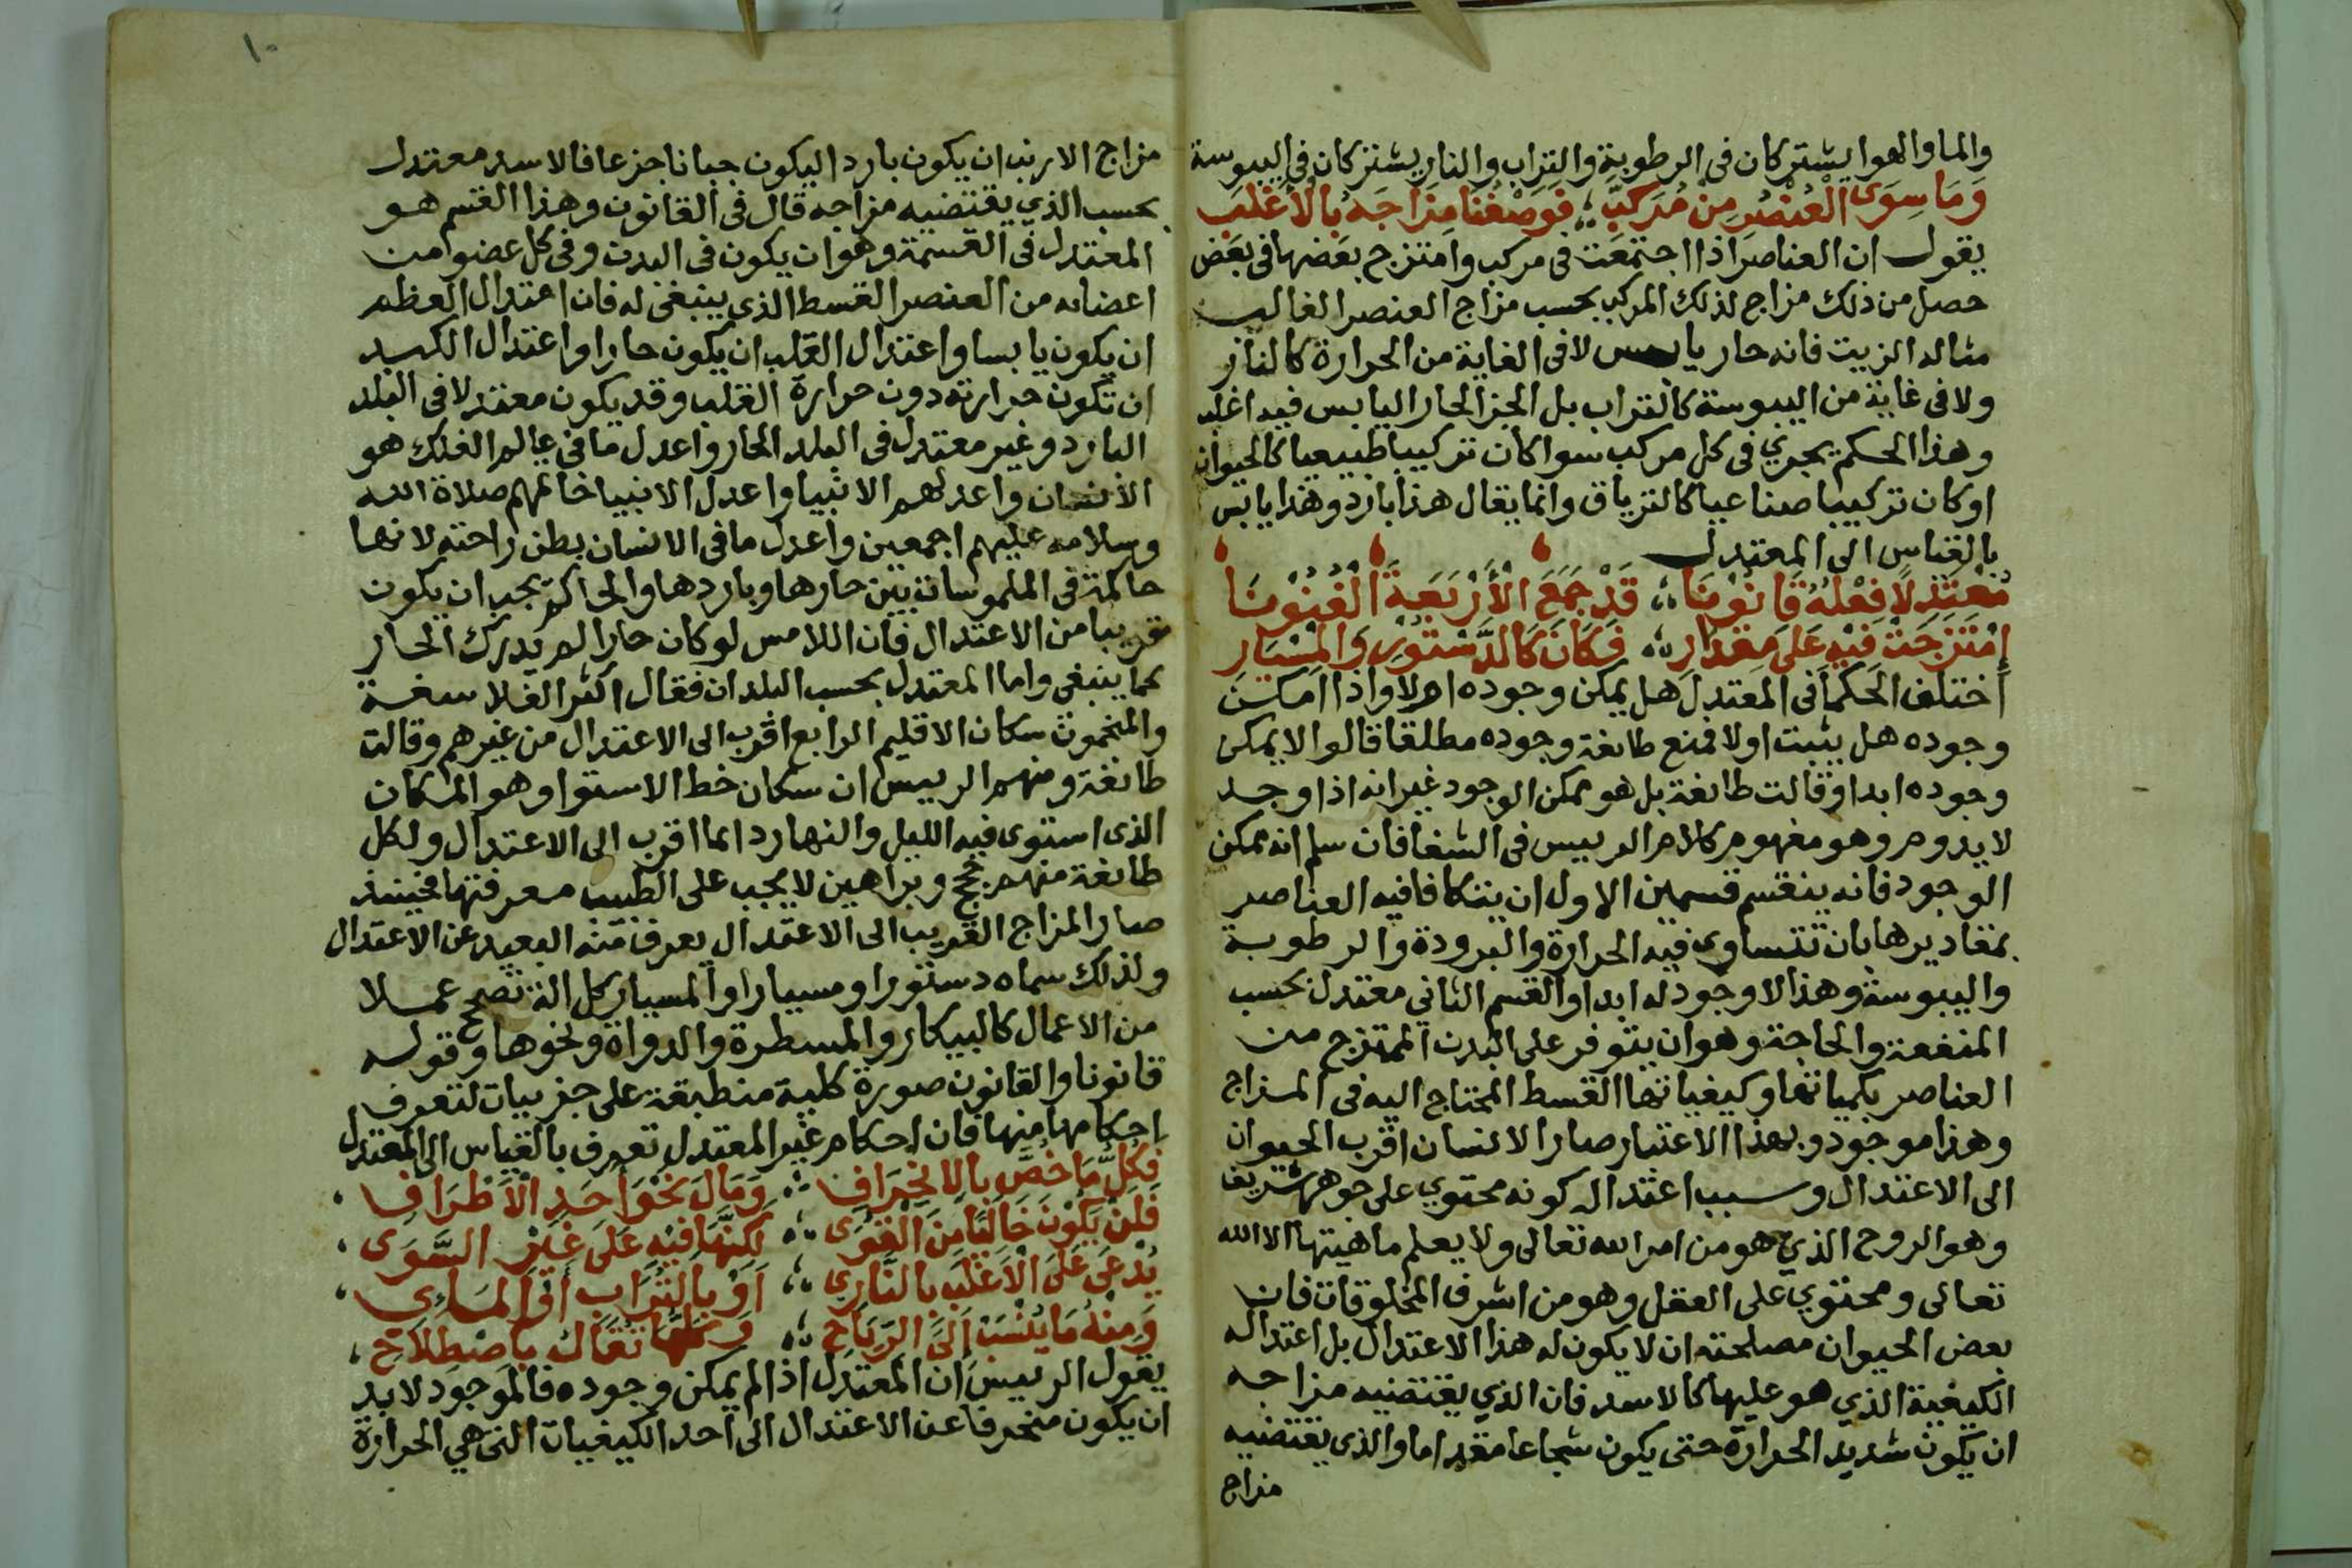 والما والهوا يشتركان فى الرطوبة والتراب والنار يشتركان فى اليبوسة
وَمَا سِوَى الْعُنْصُرِ مِنْ مُرَكَّبِ فَوَصْفُنَا مِزَاجَهُ بِالْأَغْلَبِ
يقول ان العناصر اذا اجتمعت فى مركب وامتزج بعضها فى بعض
حصل من ذلك مزاج لذلك المركب بحسب مزاج العنصر الغالب
مثاله الزيت فانه حار يابس لا فى الغاية من الحرارة كالنار
ولا فى غاية من اليبوسة كالتراب بل الجز الحار اليابس فيه اغلب
وهذا الحكم يجري فى كل مركب سوا كان تركيبا طبيعيا كالحيوان
او كان تركيبا صناعيا كالترياق وانما يقال هذا بارد وهذا يابس
بالقياس الى المعتدل
مُعْتَدِلًا فِعْلُهُ قَانُونَا قَدْ جَمَعَ الْأَرْبَعَةَ الْفُنُونَا
اِمْتَزَجَتْ فِيهِ عَلَى مِقْدَارِ فَكَانَ كَالدَّسْتُورِ وَالْمِسْيَارِ
اختلف الحكما فى المعتدل هل يمكن وجوده ام لا واذا امكن
وجوده هل يثبت اولا فمنع طائفة وجوده مطلقا قالوا لا يمكن
وجوده ابدا وقالت طائفة بل هو ممكن الوجود غير انه اذا وجد
لا يدوم وهو مفهوم كلام الرييس فى الشفا فان سلم انه ممكن
الوجود فانه ينقسم قسمين الاول ان يتكافا فيه العناصر
بمقاديرها بان تتساوى فيه الحرارة والبرودة والرطوبة
واليبوسة وهذا لا وجود له ابدا والقسم الثاني معتدل بحسب
المنفعة والحاجة وهو ان يتوفر على البدن الممتزج من
العناصر بكمياتها وكيفياتها القسط المحتاج اليه فى المزاج
وهذا موجود وبهذا الاعتبار صار الانسان اقرب الحيوان
الى الاعتدال وسبب اعتداله كونه محتوي على جوهر شريف
وهو الروح الذي هو من امر الله تعالى ولا يعلم ماهيتها الا الله
تعالى ومحتوي على العقل وهو من اشرف المخلوقات فان
بعض الحيوان مصلحته ان لا يكون له هذا الاعتدال بل اعتداله
الكيفية الذي هو عليها كالاسد فان الذي يقتضيه مزاجه
ان يكون شديد الحرارة حتى يكون شجاعا مقداما والذى يقتضيه
مزاج
١٠
مزاج الارنب ان يكون باردا ليكون جبانا جزعا فالاسد معتدل
بحسب الذي يقتضيه مزاجه قال فى القانون وهذا القسم هو
المعتدل فى القسمة وهو ان يكون فى البدن وفى كل عضوا من
اعضائه من العنصر القسط الذى ينبغى له فان اعتدال العظم
ان يكون يابسا واعتدال القلب ان يكون حارا واعتدال الكبد
ان تكون حرارته دون حرارة القلب وقد يكون معتدلا فى البلد
البارد وغير معتدل فى البلد الحار واعدل ما فى عالم الفلك هو
الانسان واعدلهم الانبيا واعدل الانبيا خاتمهم صلاة الله
وسلامه عليهم اجمعين واعدل ما فى الانسان بطن راحته لانها
حاكمة فى الملموسات بين حارها وباردها والحاكم يجب ان يكون
قريبا من الاعتدال فان اللامس لو كان حارا لم يدرك الحار
كما ينبغى واما المعتدل بحسب البلدان فقال اكثر الفلاسفة
والمنجمون سكان الاقليم الرابع اقرب الى الاعتدال من غيرهم وقالت
طائفة ومنهم الرييس ان سكان خط الاستوا وهو المكان
الذى استوى فيه الليل والنهار دائما اقرب الى الاعتدال ولكل
طائفة منهم حجج وبراهين لا يجب على الطبيب معرفتها فحينئذ
صار المزاج القريب الى الاعتدال يعرف منه البعيد عن الاعتدال
ولذلك سماه دستورا ومسيارا والمسيار كل الة تصحح عملا
من الاعمال كالبيكار والمسطرة والدواة ونحوها وقوله
قانونا والقانون صورة كلية منطبقة على جزييات لتعرف
احكامها منها فان احكام غير المعتدل تعرف بالقياس الى المعتدل
فَكُلُّ مَا خُصَّ بِالِانْحِرَافِ وَمَالَ نَحْوَ أَحَدِ الْأَطْرَافِ
فَلَنْ يَكُونَ خَالِيًا مِنَ الْقُوَى لَكِنَّهَا فِيهِ عَلَى غَيْرِ السَّوَى
يُدْعَى عَلَى الْأَغْلَبِ بِالنَّارِي أَوْ بِالتُّرَابِ أَوِ الْمَائِى
وَمِنْهُ مَا يُنْسَبُ إِلَى الرِّيَاحِ وَكُلُّهَا تُقَالُ بِاصْطِلَاحِ
يقول الرييس ان المعتدل اذا لم يمكن وجوده فالموجود لابد
ان يكون منحرفا عن الاعتدال الى احد الكيفيات التى هي الحرارة